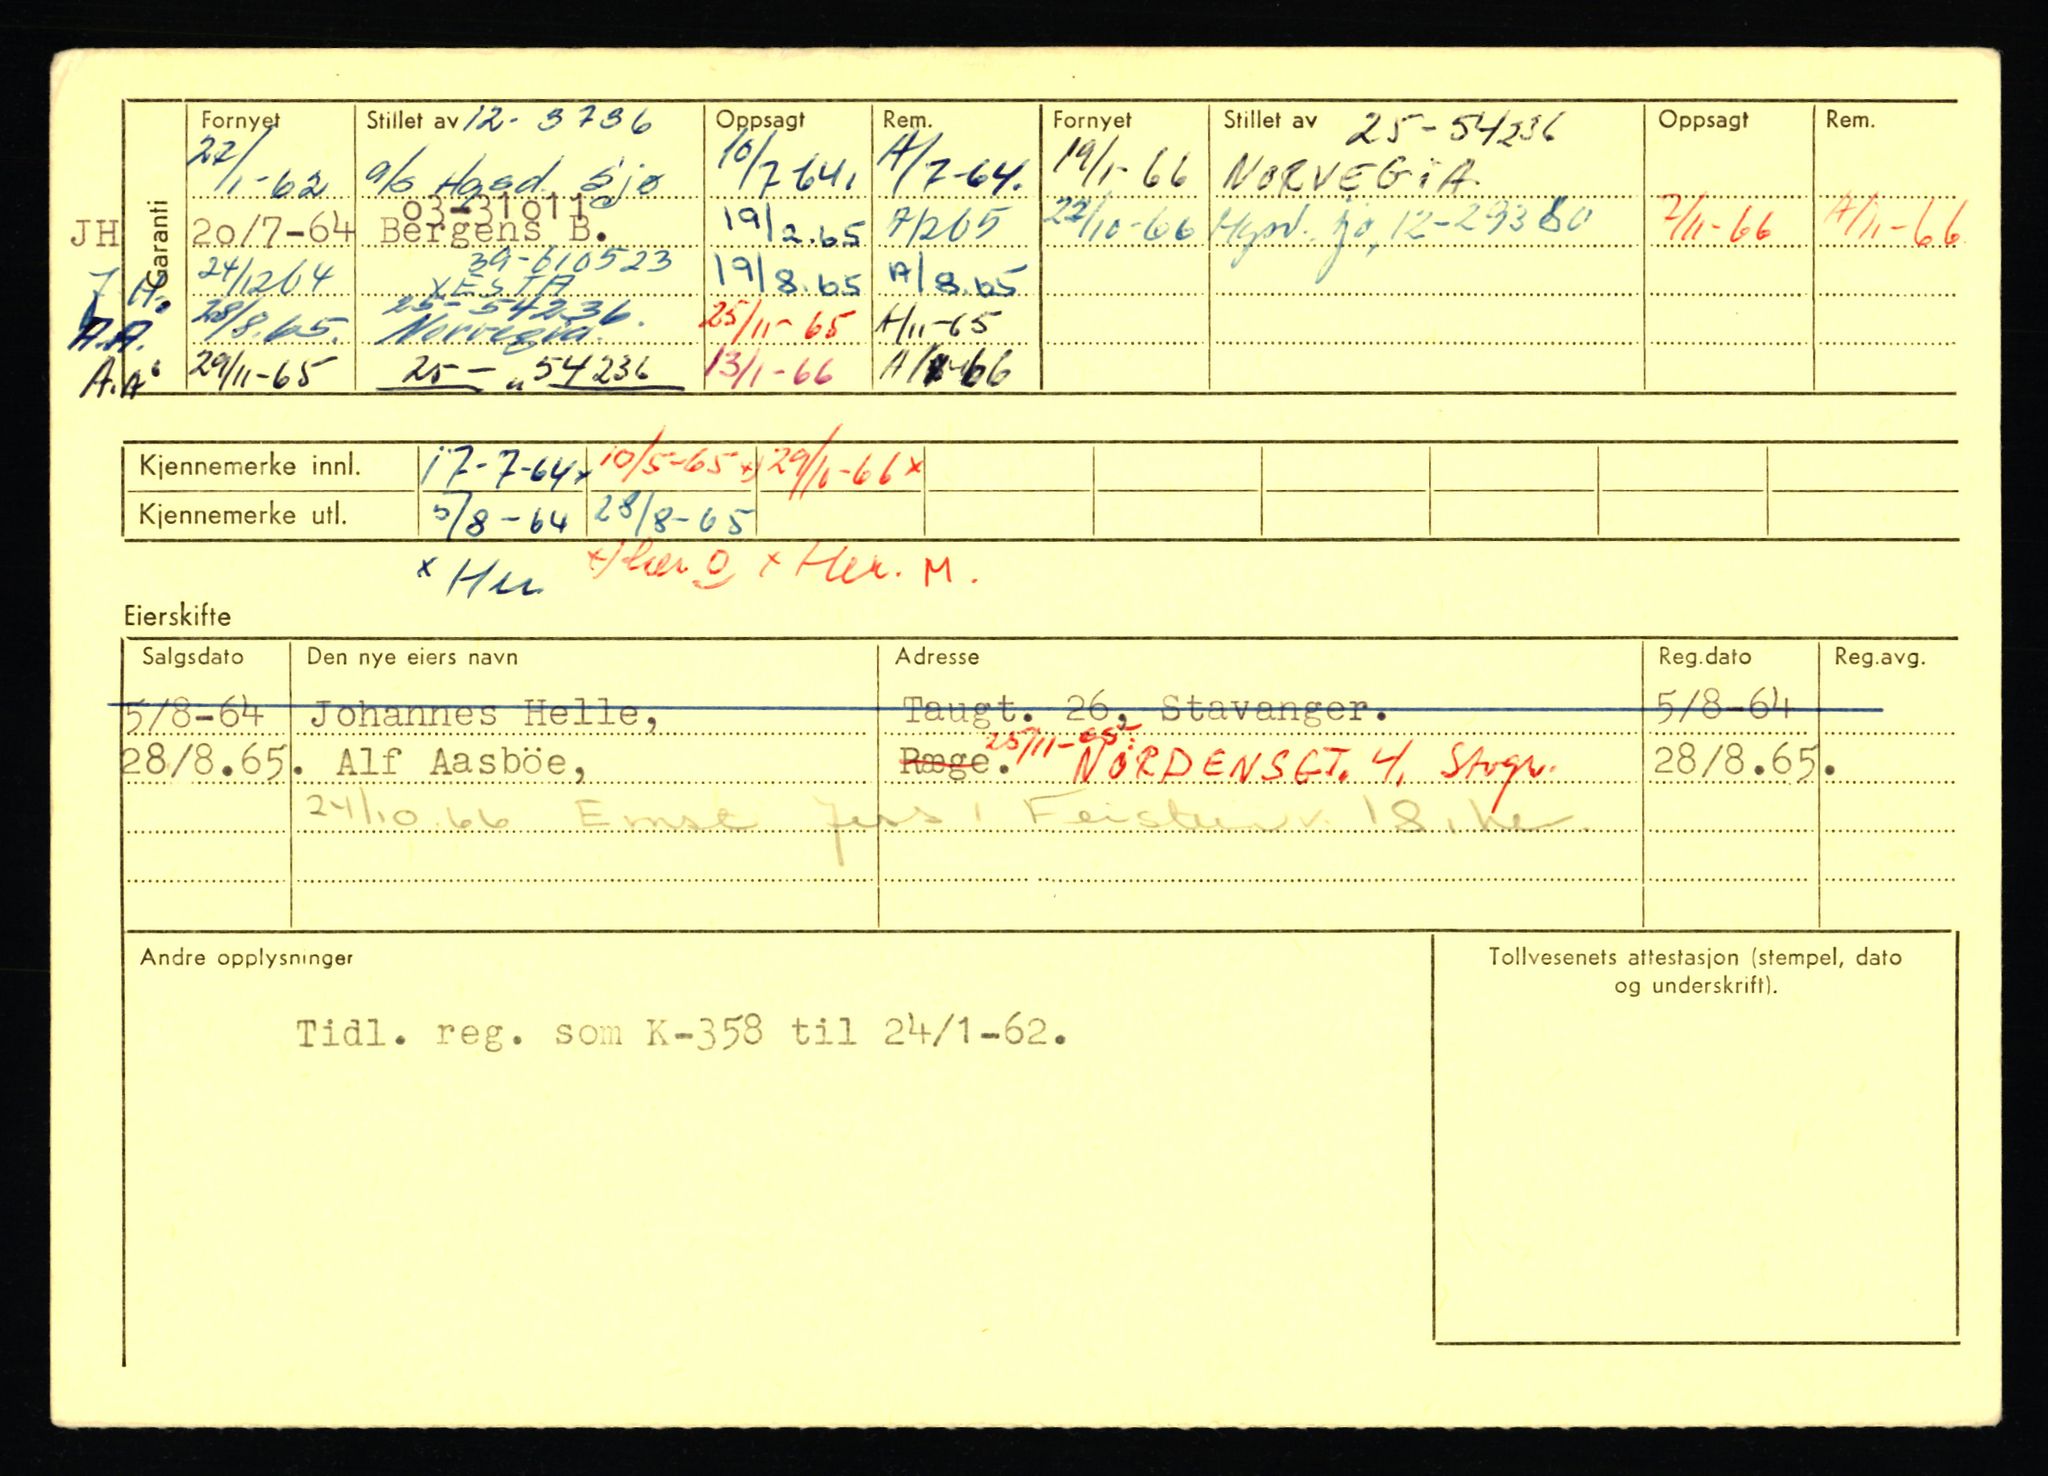 Garanti
Fornyet Stillet av 12-3736 Oppsagt Rem. Fornyet Stillet av 25-54236 Oppsagt Rem.
22/1-62 a/s Hgsd. Sjø 10/7-64. A/7-64. 19/1-66 NORVEGIA
03-31011
JH 20/7-64 Bergens B. 19/2.65 A/265 22/10-66 Hgsd. Sjø, 12-29380 7/11-66 A/11-66
39-610523
24/1264 VESTA 19/8.65 A/8.65
25-54236.
A.A. 28/8.65. Norvegia. 25/11-65 A/11-65
A.A. 29/11-65 25-„54236 13/1-66 A/1-66
Kjennemerke innl. 17-7-64x 10/5-65x) 29/11-66x
Kjennemerke utl. 5/8-64 28/8-65
x Her x) Her O x Her. M.
Eierskifte
Salgsdato Den nye eiers navn Adresse Reg.dato Reg.avg.
5/8-64 Johannes Helle, Taugt. 26, Stavanger. 5/8-64
28/8.65. Alf Aasböe, Ræge. 25/11-65: NORDENSGT. 4, Stvgr. 28/8.65.
24/10.66 Ernst Feistein v. 18,
Andre opplysninger
Tollvesenets attestasjon (stempel, dato
og underskrift).
Tidl. reg. som K-358 til 24/1-62.